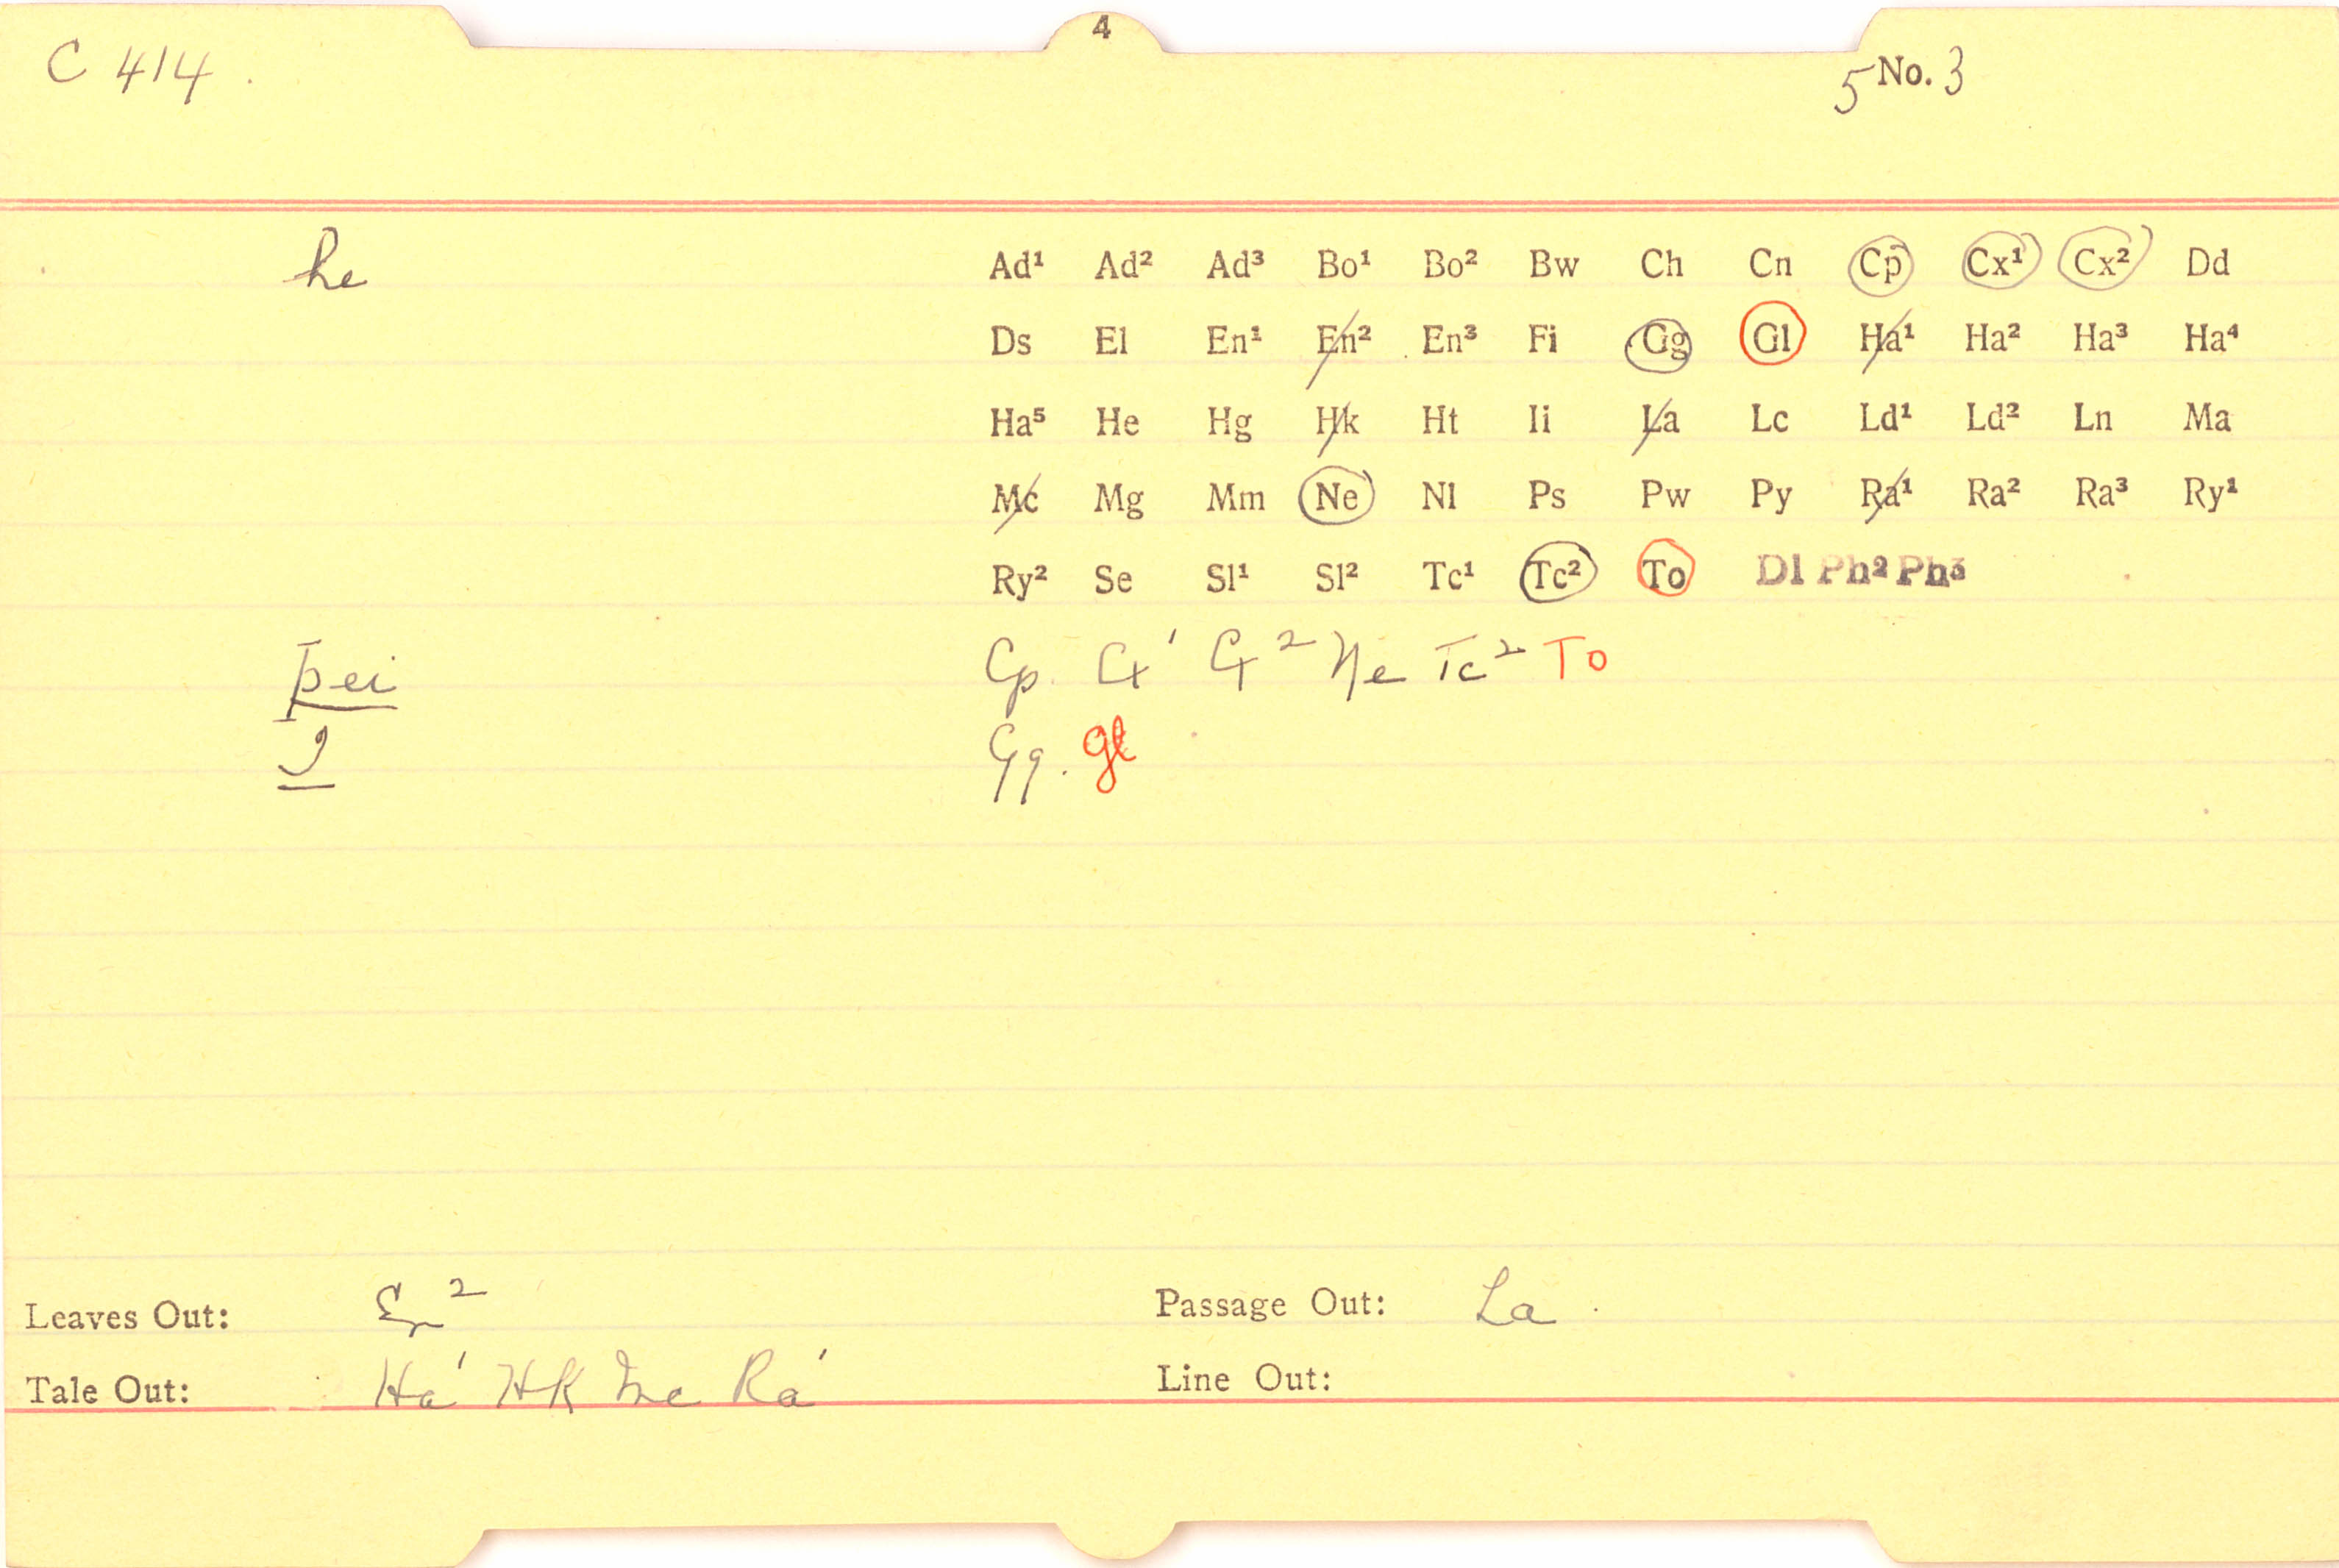 4
C 414.
5 No. 3
he
Ad¹ Ad² Ad³ Bo¹ Bo² Bw Ch Cn Cp Cx¹ Cx² Dd
Ds El En¹ En² En³ Fi Gg Gl Ha¹ Ha² Ha³ Ha⁴
Ha⁵ He Hg Hk Ht Ii La Lc Ld¹ Ld² Ln Ma
Mc Mg Mm Ne Nl Ps Pw Py Ra¹ Ra² Ra³ Ry¹
Ry² Se Sl¹ Sl² Tc¹ Tc² To Dl Ph² Ph³
þei Cp. Cx¹ Cx² Ne Tc² To
I Gg. Gl
Leaves Out: En² Passage Out: La.
Tale Out: Ha¹ Hk Mc Ra¹ Line Out: